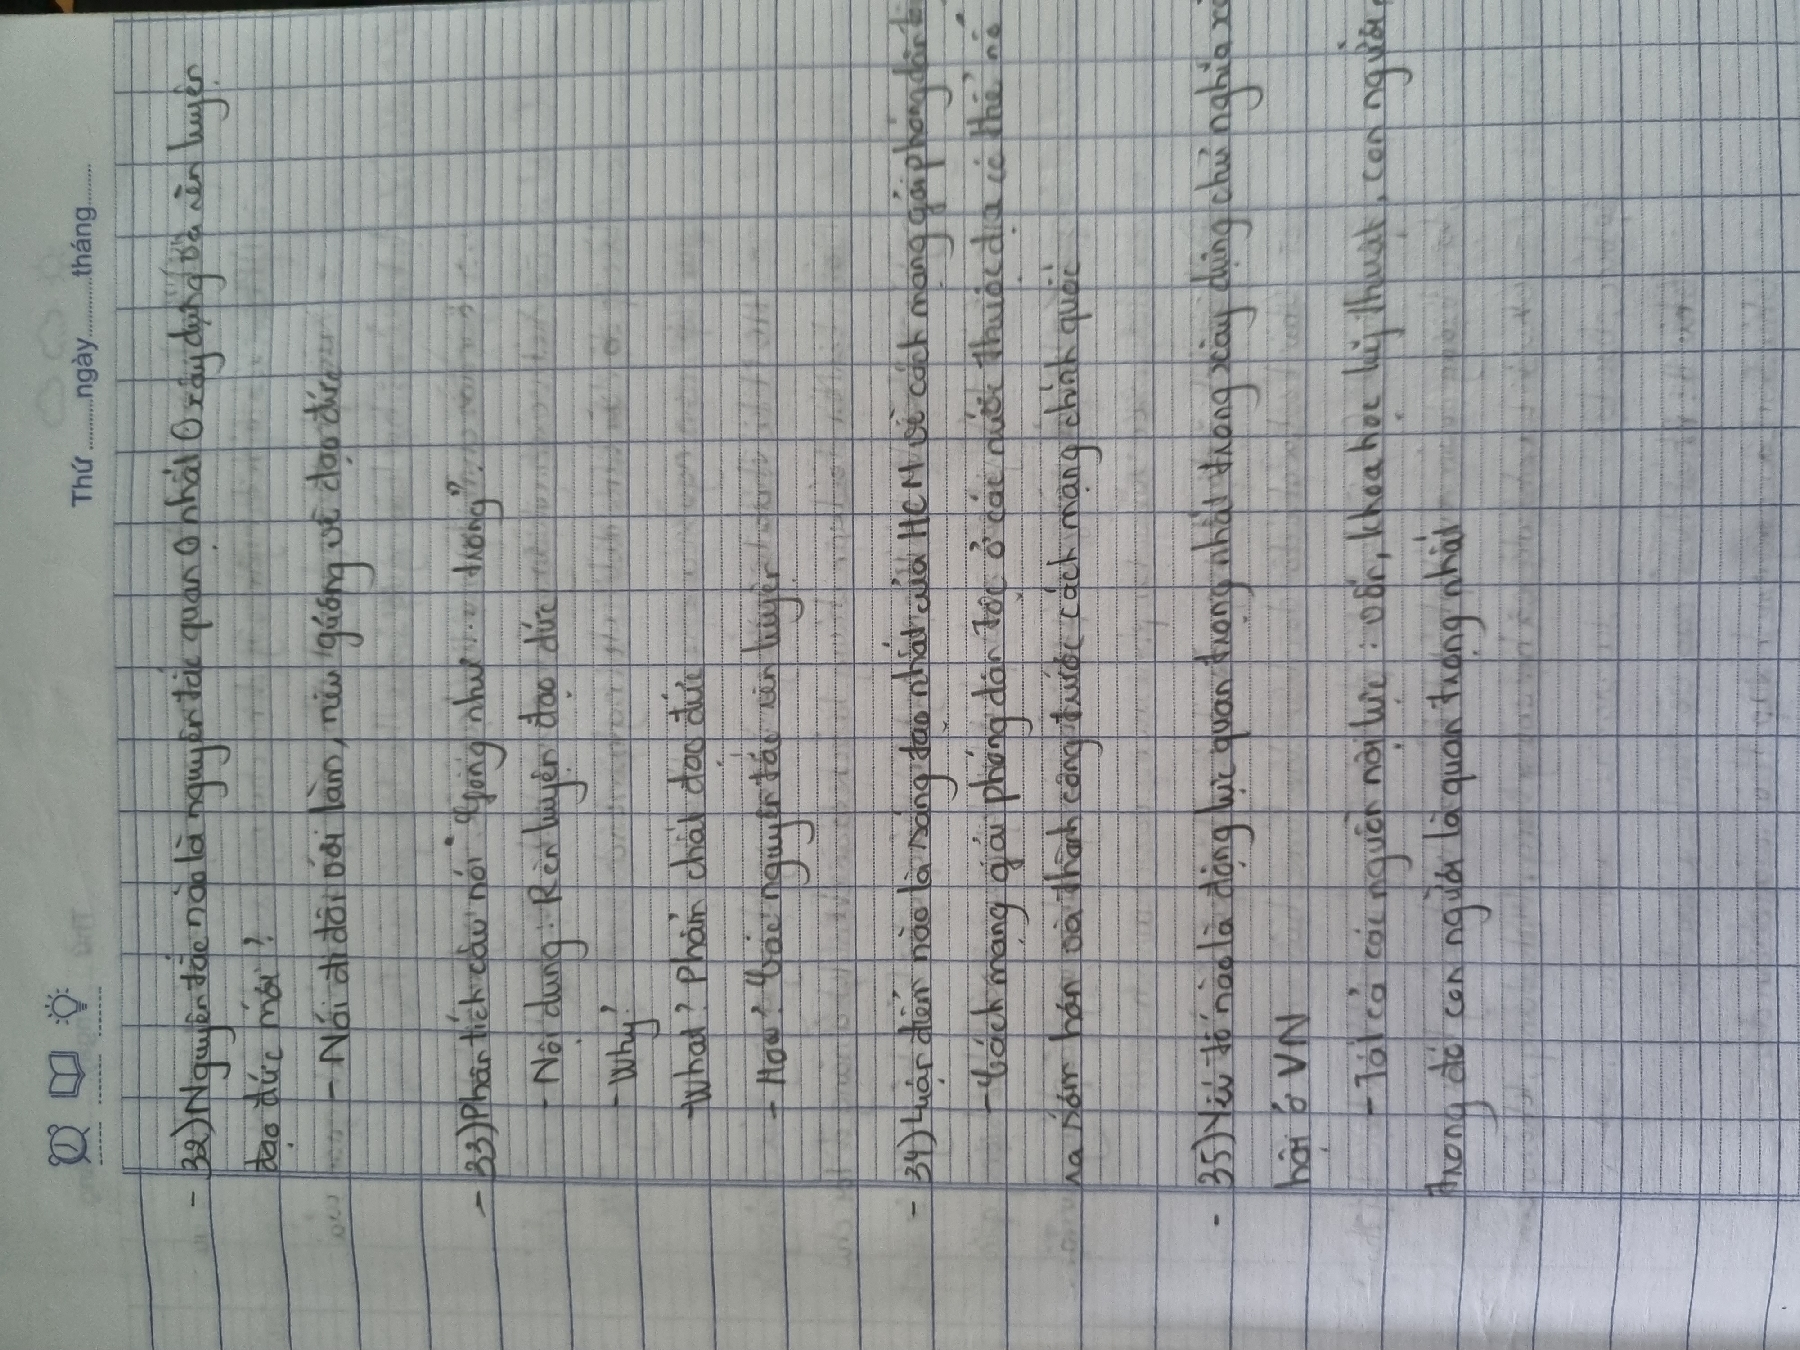 Thứ ........ngày..........tháng.......
- 32) Nguyên tắc nào là nguyên tắc quan nhất xây dựng và rèn luyện
đạo đức mới?
- Nói đi đôi với làm, nêu gương về đạo đức
- 33) Phân tích câu nói " như ... trong".
- Nội dung: Rèn luyện đạo đức
- Why?
- What? Phẩm chất đạo đức
- How? Các nguyên tắc rèn luyện
- 34) Luận điểm nào là sáng tạo nhất của HCM về cách mạng giải phóng dân
- Cách mạng giải phóng dân tộc ở các nước thuộc địa có thể nổ
ra sớm hơn và thành công trước cách mạng chính quốc
- 35) Yếu tố nào là động lực quan trọng nhất trong xây dựng chủ nghĩa xã
hội ở VN
- Tất cả các nguồn nội lực: vốn, khoa học kỹ thuật, con người,
trong đó con người là quan trọng nhất